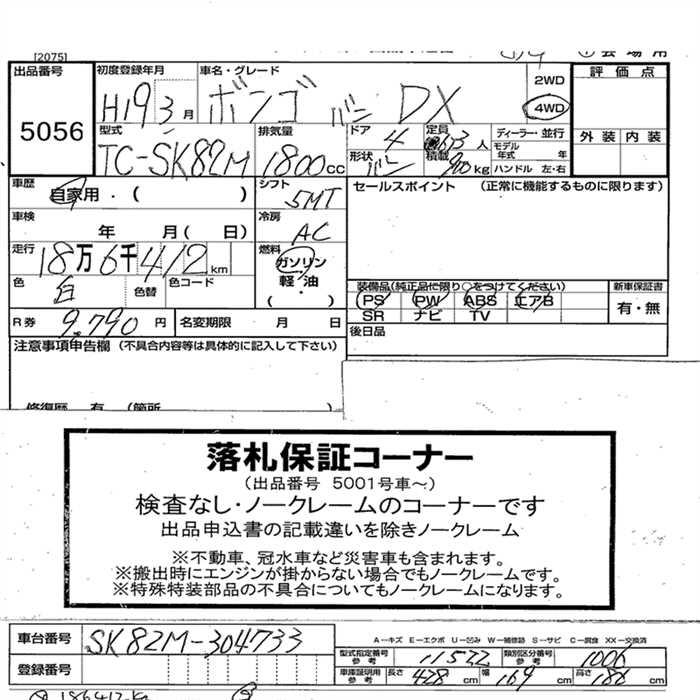 [2075]
出品番号
5056
初度登録年月
H19 3月
車名・グレード
ボンゴ バン DX
2WD
4WD
評価点
外装 内装
型式
TC-SK82M
排気量
1800cc
ドア
4
定員
人
形状
バン
積載
900kg
ディーラー・並行
モデル年式 年
ハンドル 左・右
車歴
自家用・( )
シフト
5MT
セールスポイント (正常に機能するものに限ります)
車検
年 月(日)
冷房
AC
走行
18万6千412km
燃料
ガソリン
軽・油
( )
色
白
色替
色コード
装備品(純正品に限り○をつけてください)
PS PW ABS エアB
SR ナビ TV
新車保証書
有・無
R券
9,790円
名変期限 月 日
後日品
注意事項申告欄 (不具合内容等は具体的に記入して下さい)
修復歴 有 (箇所 )
落札保証コーナー
(出品番号 5001号車～)
検査なし・ノークレームのコーナーです
出品申込書の記載違いを除きノークレーム
※不動車、冠水車など災害車も含まれます。
※搬出時にエンジンが掛からない場合でもノークレームです。
※特殊特装部品の不具合についてもノークレームになります。
車台番号
SK82M-304733
登録番号
A－キズ E－エクボ U－凹み W－補修跡 S－サビ C－腐食 XX－交換済
型式指定番号 参考
11522
類別区分番号 参考
1006
車庫証明用 参考
長さ 428cm 幅 169cm 高さ 188cm